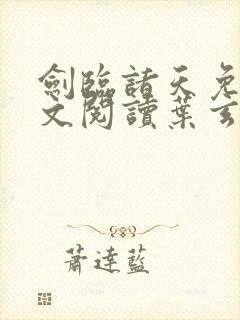 劍臨諸天免
文閱讀葉玄
蕭達藍